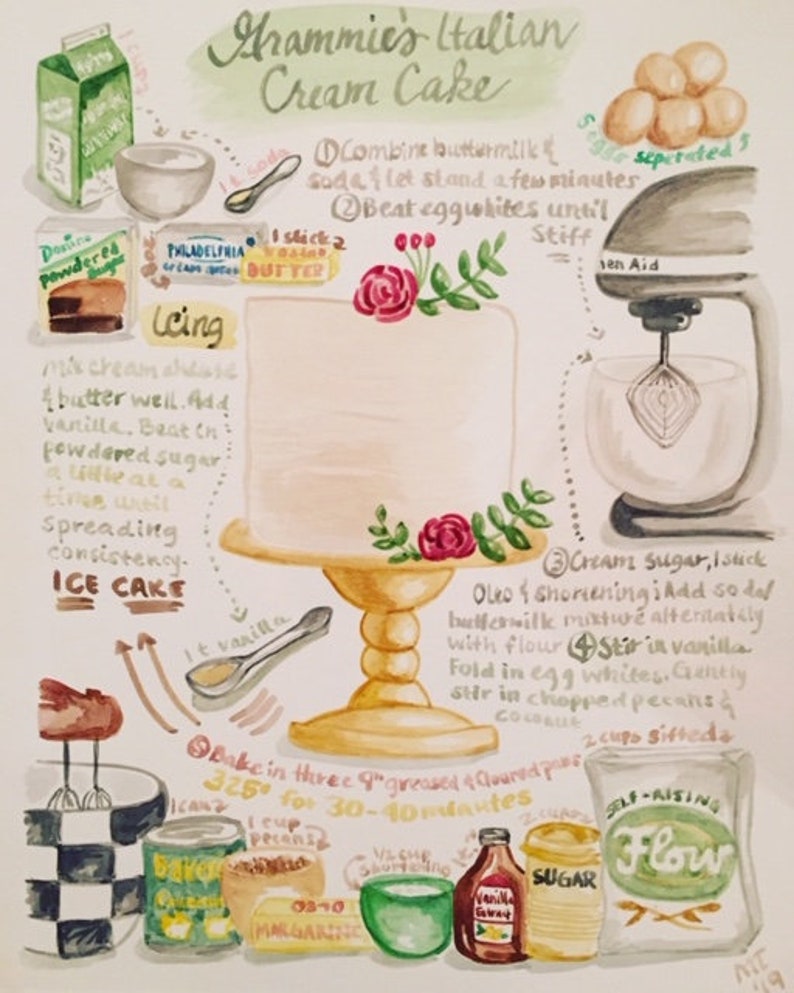 Grammie's Italian
Cream Cake
1 cup
1 t soda
5 eggs seperated
① Combine buttermilk &
soda & let stand a few minutes
② Beat egg whites until
Stiff
Domino
powdered
Sugar
8 oz.
PHILADELPHIA
CREAM CHEESE
1 stick
BUTTER
en Aid
Icing
mix cream cheese
& butter well. Add
vanilla. Beat in
powdered sugar
a little at a
time until
spreading
consistency.
ICE CAKE
1 t vanilla
③ Cream sugar, 1 stick
Oleo & shortening; Add soda/
buttermilk mixture alternately
with flour ④ Stir in vanilla
Fold in egg whites. Gently
stir in chopped pecans &
coconut
⑤ Bake in three 9" greased & floured pans
325° for 30-40 minutes
2 cups sifted
1 can
1 cup
pecans
1/2 cup
shortening
2 cups
Baker's
Coconut
OLEO
MARGARINE
Vanilla
Extract
SUGAR
SELF-RISING
Flour
MT
'19